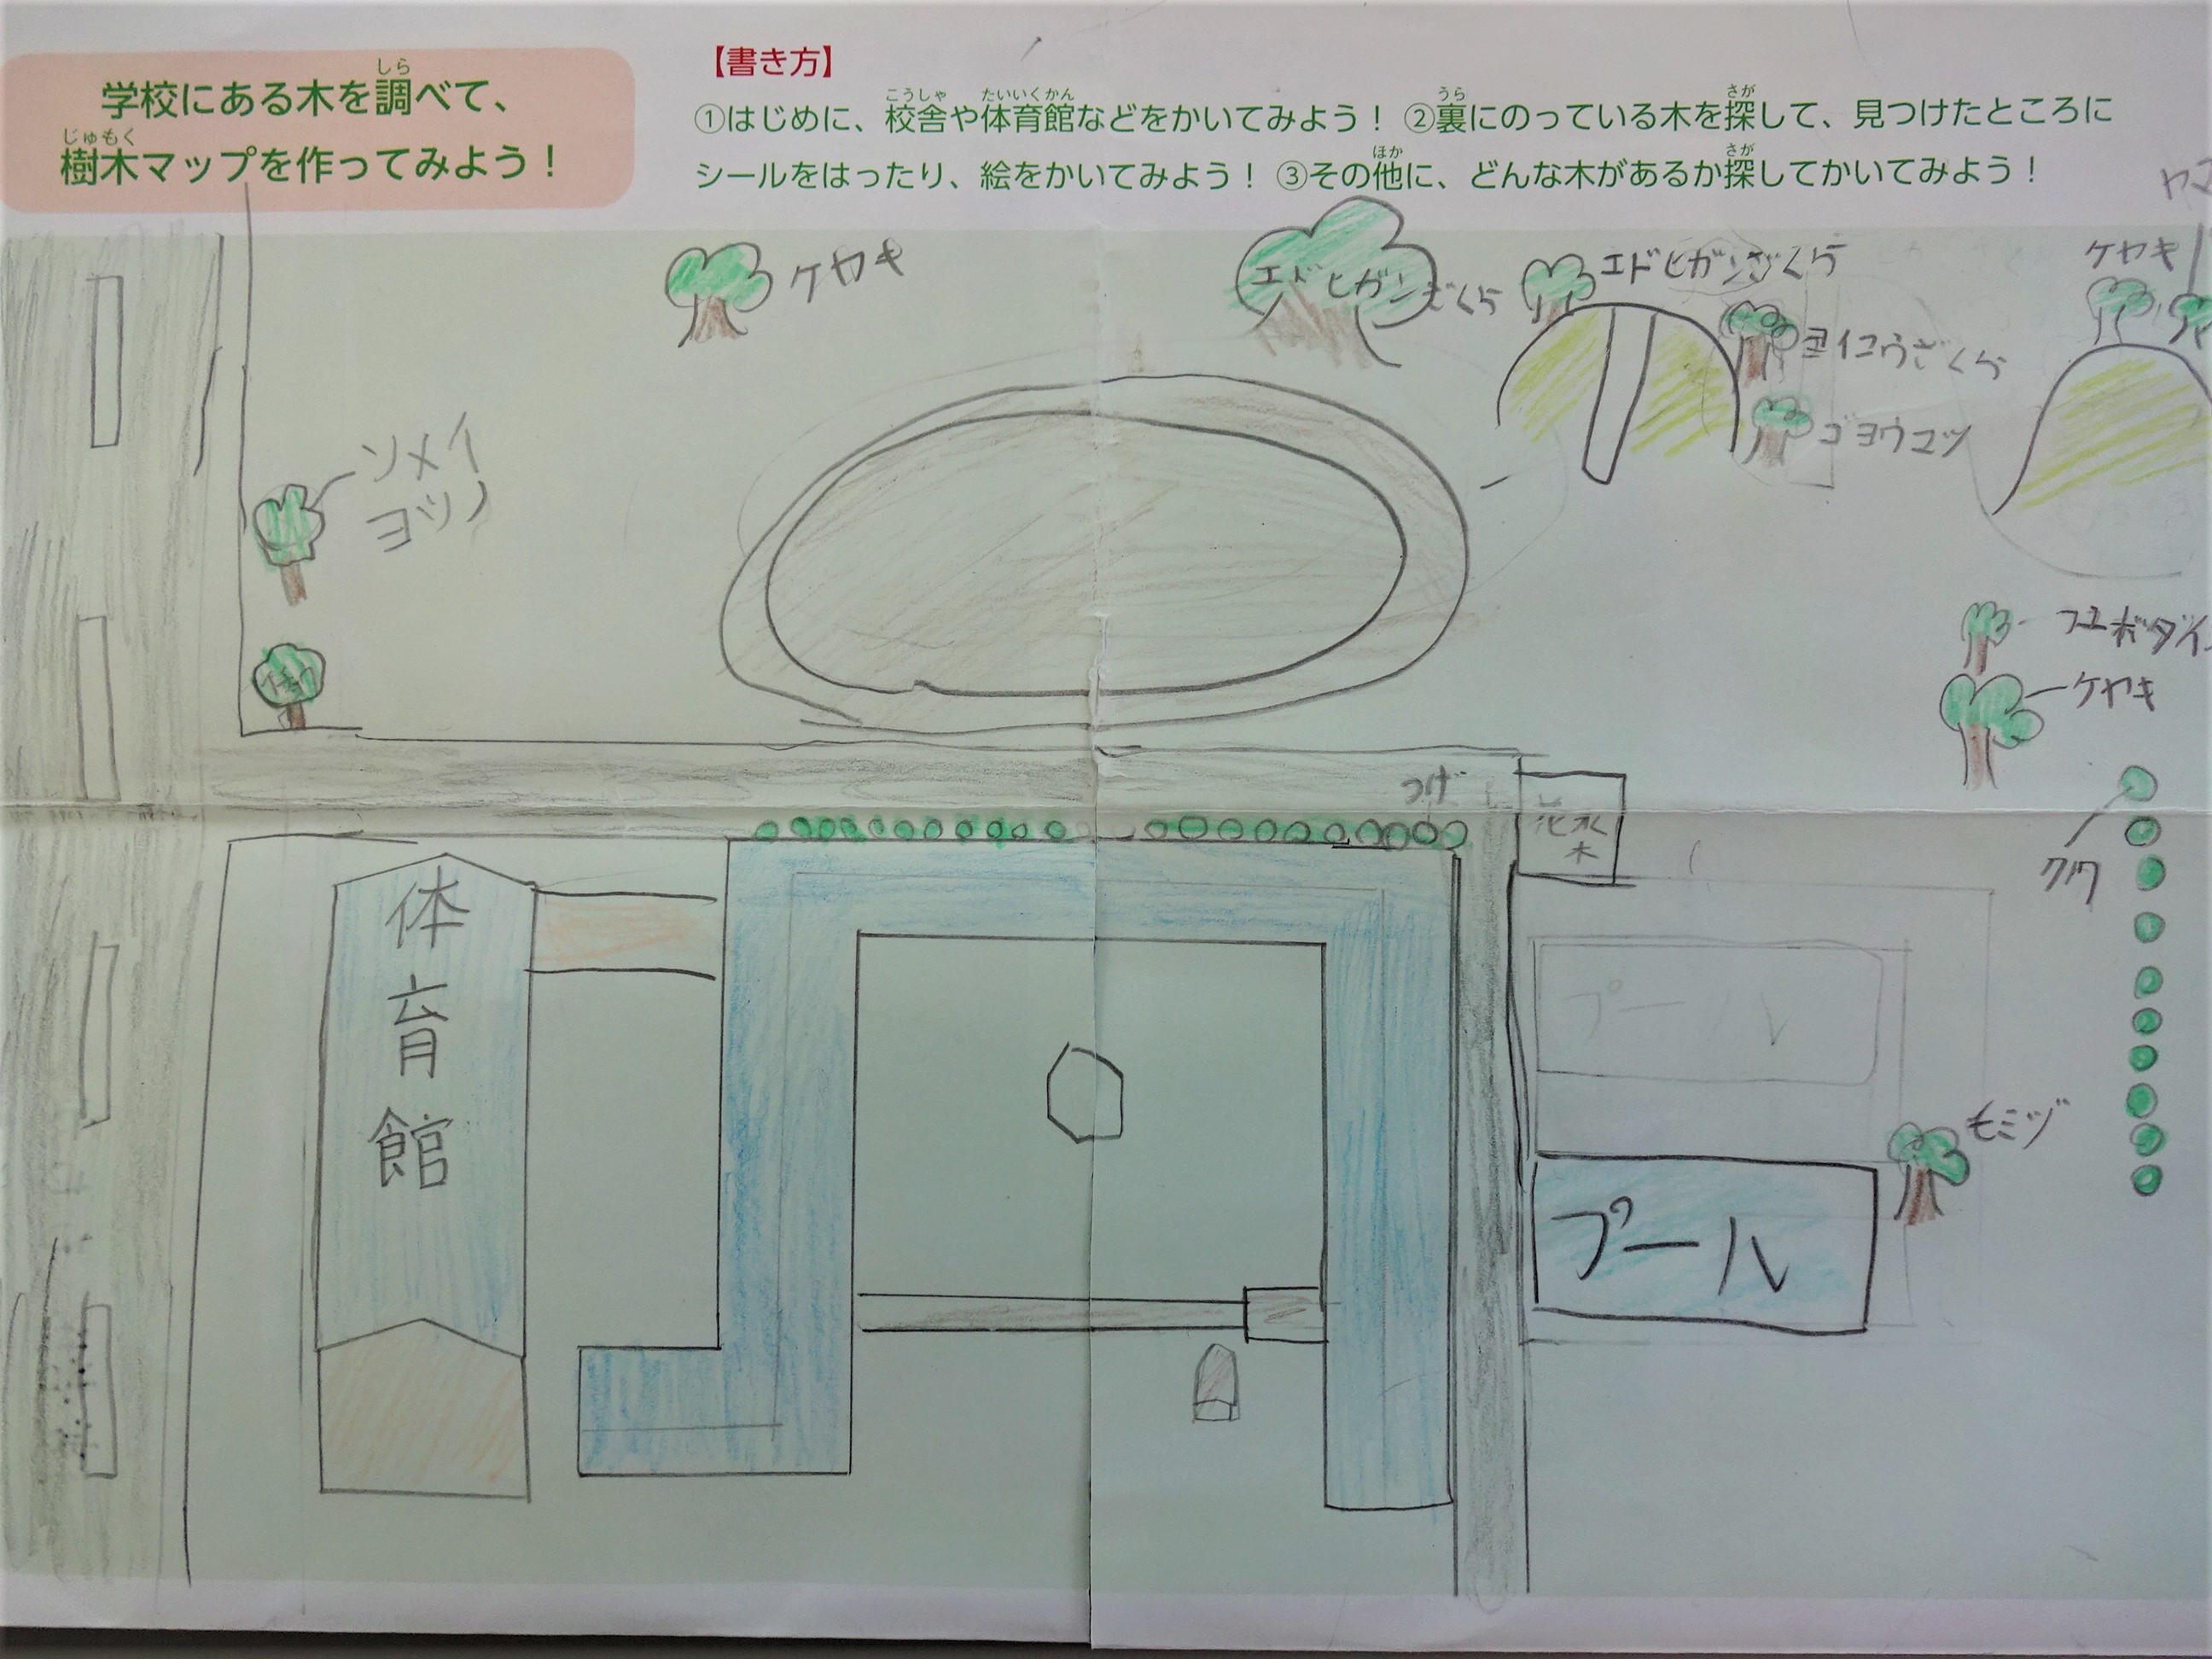 学校にある木を調べて、
樹木マップを作ってみよう！
【書き方】
①はじめに、校舎や体育館などをかいてみよう！ ②裏にのっている木を探して、見つけたところに
シールをはったり、絵をかいてみよう！ ③その他に、どんな木があるか探してかいてみよう！
ケヤキ
エドヒガンざくら
エドヒガンざくら
ヨイコウざくら
ゴヨウマツ
ケヤキ
ヤマ
ソメイ
ヨシノ
フユボダイ
ケヤキ
つげ
花水
木
クワ
体育館
プール
プール
モミジ